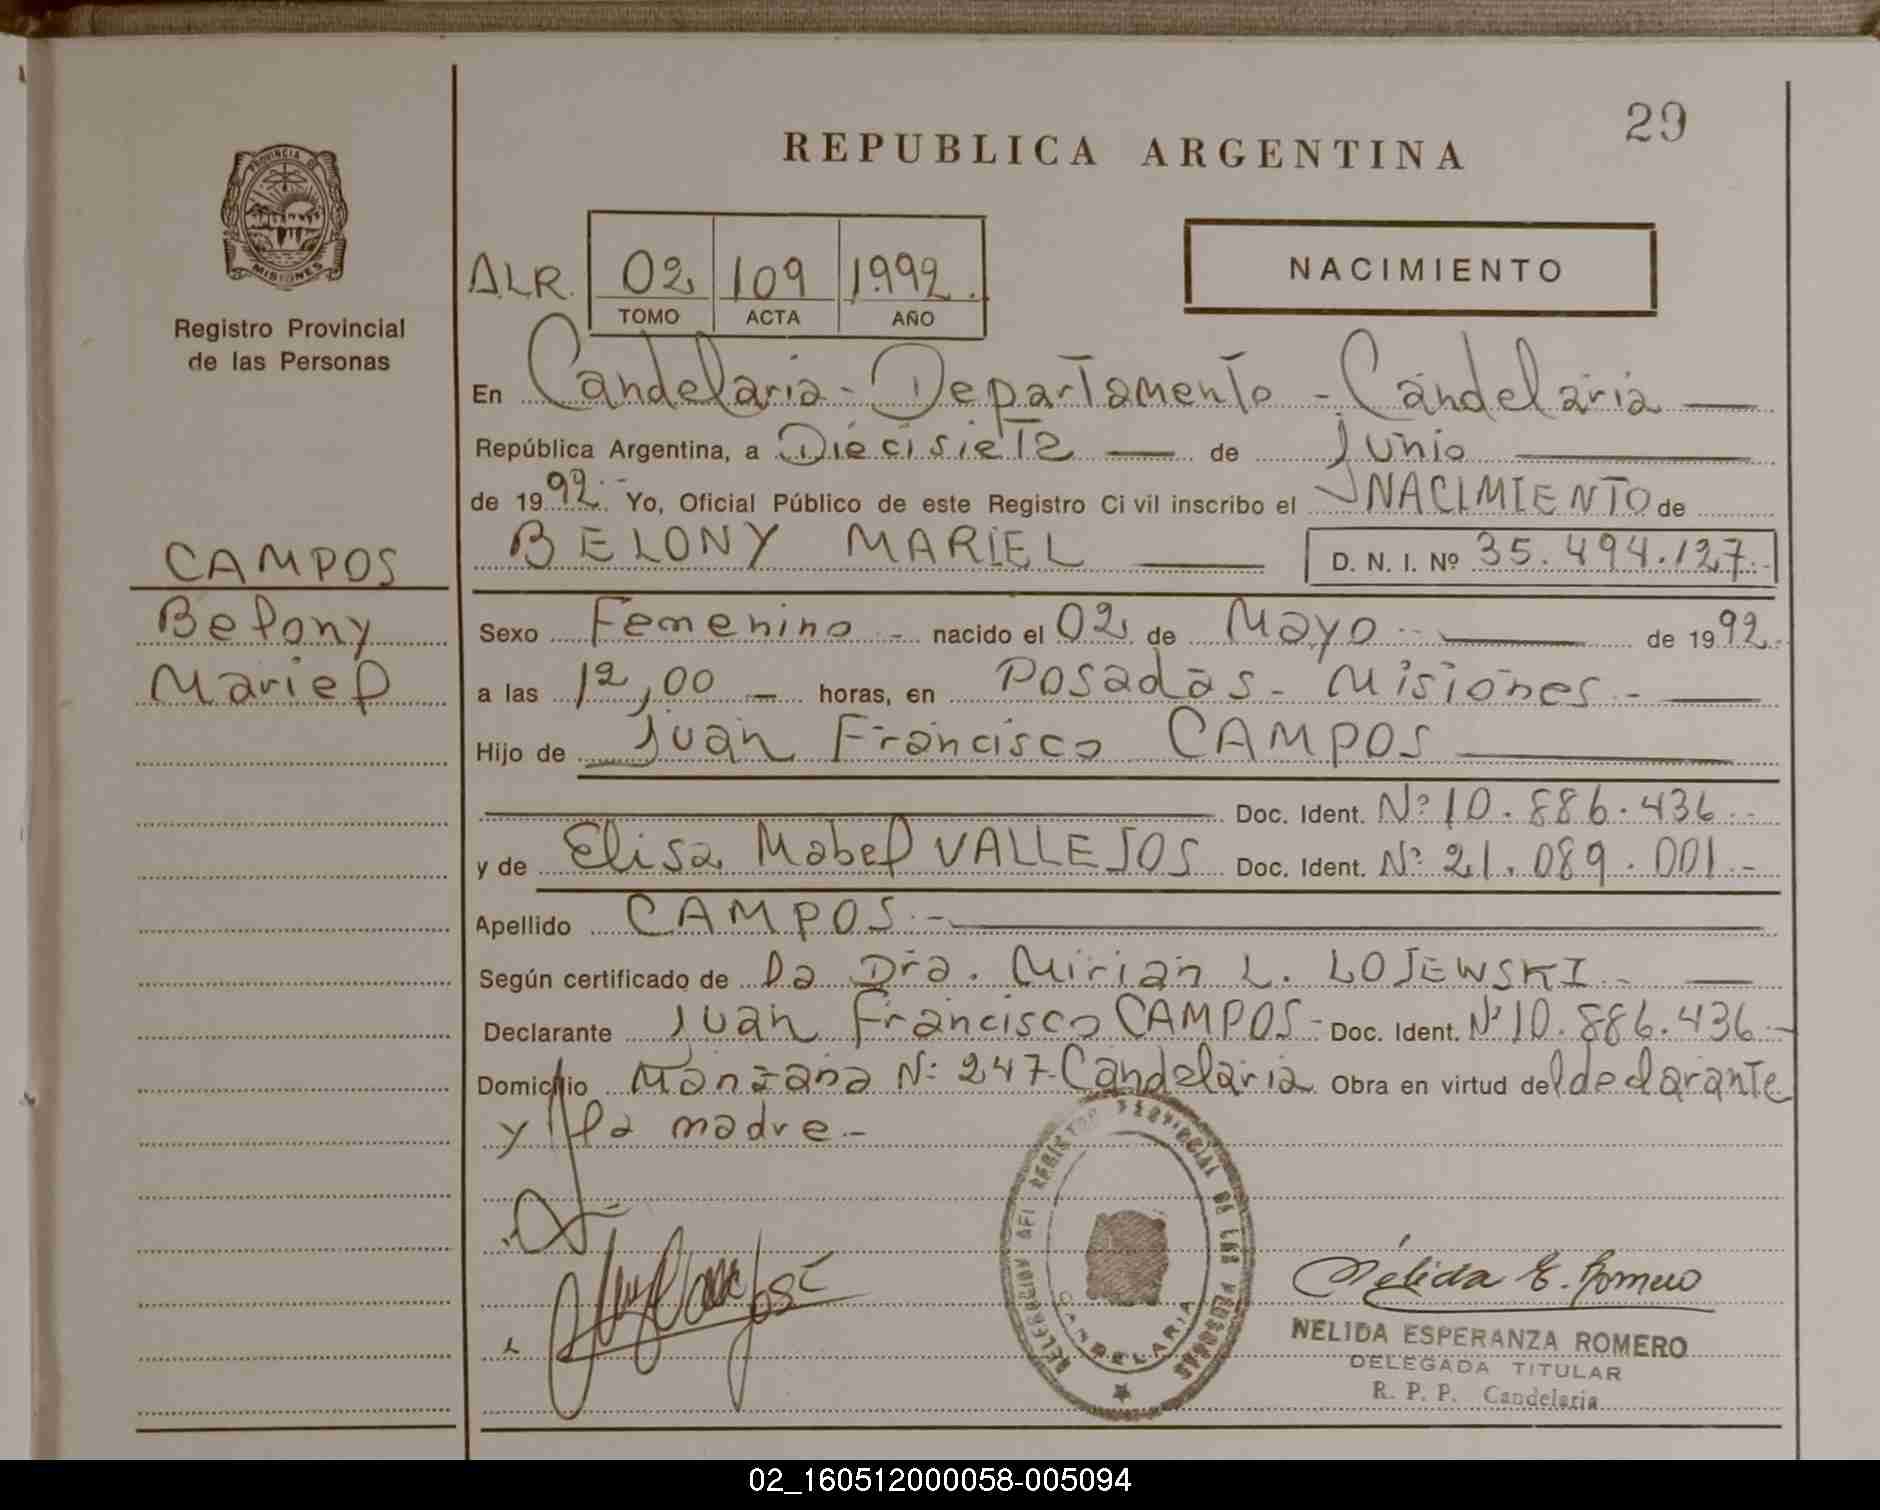 29
REPUBLICA ARGENTINA
PROVINCIA DE
MISIONES
Registro Provincial
de las Personas
A.L.R. 02 109 1992.
TOMO ACTA AÑO
NACIMIENTO
En Candelaria - Departamento - Candelaria
República Argentina, a Diecisiete de Junio
de 1992.- Yo, Oficial Público de este Registro Civil inscribo el NACIMIENTO de
BELONY MARIEL D. N. I. Nº 35.494.127.-
CAMPOS
Belony
Mariel
Sexo Femenino - nacido el 02 de Mayo - de 1992.
a las 12,00 - horas, en Posadas - Misiones -
Hijo de Juan Francisco CAMPOS
Doc. Ident. Nº 10.886.436.-
y de Elisa Mabel VALLEJOS Doc. Ident. Nº 21.089.001.-
Apellido CAMPOS.-
Según certificado de la Dra. Mirian L. LOJEWSKI.-
Declarante Juan Francisco CAMPOS- Doc. Ident. Nº 10.886.436.-
Domicilio Manzana Nº 247-Candelaria Obra en virtud del declarante
y la madre.-
REGISTRO PROVINCIAL DE LAS PERSONAS
CANDELARIA
Nélida E. Romero
NELIDA ESPERANZA ROMERO
DELEGADA TITULAR
R. P. P. Candelaria
02_160512000058-005094